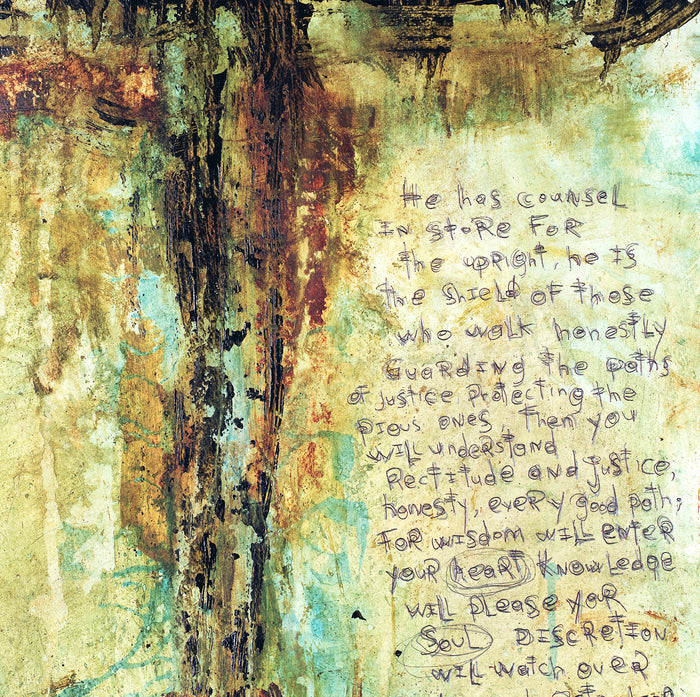 He has counsel
IN STORE FOR
the upright, he IS
the Shield of those
who walk honestly
Guarding the paths
of justice Protecting the
Pious ones, Then you
will understand
Rectitude and justice,
honesty, every good path;
For wisdom will enter
your heart Knowledge
will please your
SOUL DISCRETION
will watch over